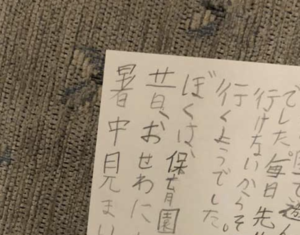 暑中見まい
昔、おせわに
ぼくは、保育園
行くようでした。
行けないからそ
でした。毎日先
て遊ん